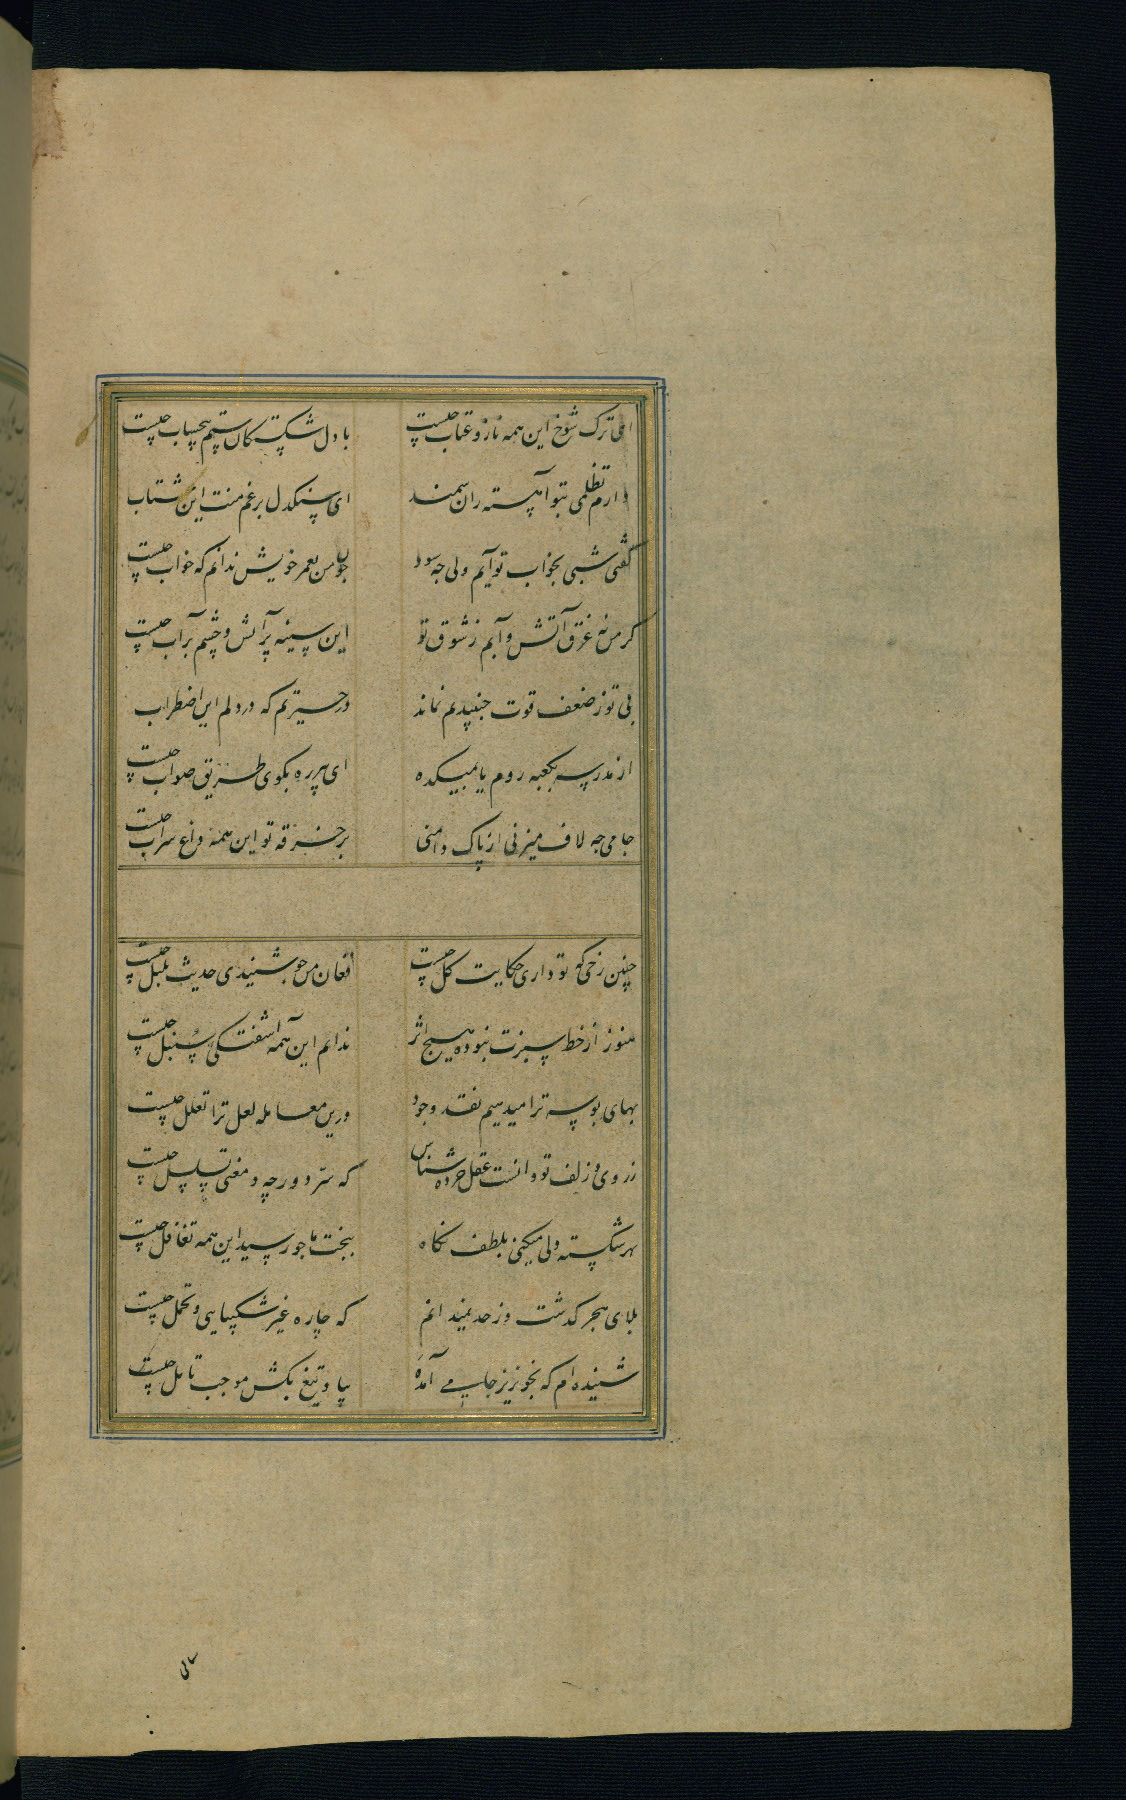 ای ترک شوخ این همه ناز و عتاب چیست
با دل شکستکان ستم بیحساب چیست
دارم تظلمی بتو آهسته ران سمند
ای سنکدل برغم منت این شتاب چیست
کفتی شبی بخواب تو آیم ولی چه سود
چون من بعمر خویش ندانم که خواب چیست
کر من نه غرق آتش و آبم ز شوق تو
این سینه پر آتش و چشم پر آب چیست
بی تو ز ضعف قوت جنبیدنم نماند
در حیرتم که در دلم این اضطراب
از مدرسه بکعبه روم یا بمیکده
ای پیر ره بکوی طریق صواب چیست
جامی چه لاف میزنی از پاک دامنی
بر خرقه تو این همه داغ شراب چیست
چنین رخی که تو داری حکایت کل چیست
فغان من چو شنیدی حدیث بلبل چیست
هنوز از خط سبزت نبوده هیچ اثر
ندانم این همه آشفتکی سنبل چیست
بهای بوسه ترا میدهیم نقد وجود
درین معامله لعل ترا تعلل چیست
ز روی و زلف تو دانست عقل خرده شناس
که سر دور چه و معنی تسلسل چیست
بهر شکسته دلی میکنی بلطف نکاه
ببخت ما چو رسید این همه تغافل چیست
بلای هجر کذشت و ز حد نمیدانم
که چاره غیر شکیبایی و تحمل چیست
شنیده ام که بخونریز جامی آمده
بیا و تیغ بکش موجب تامل چیست